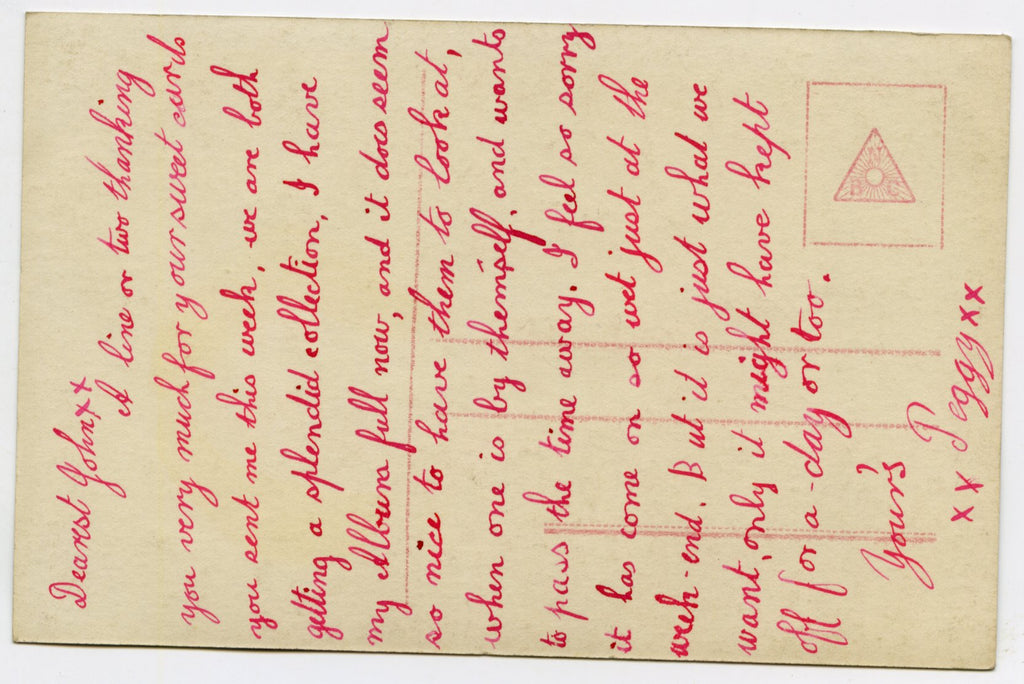 Dearest John, x x
A line or two thanking
you very much for your sweet cards
you sent me this week, we are both
getting a splendid collection, I have
my Album full now, and it does seem
so nice to have them to look at,
when one is by themself, and wants
to pass the time away. I feel so sorry
it has come on so wet just at the
week-end. But it is just what we
want, only it might have kept
off for a-day or too.
Your's
x x Peggy x x